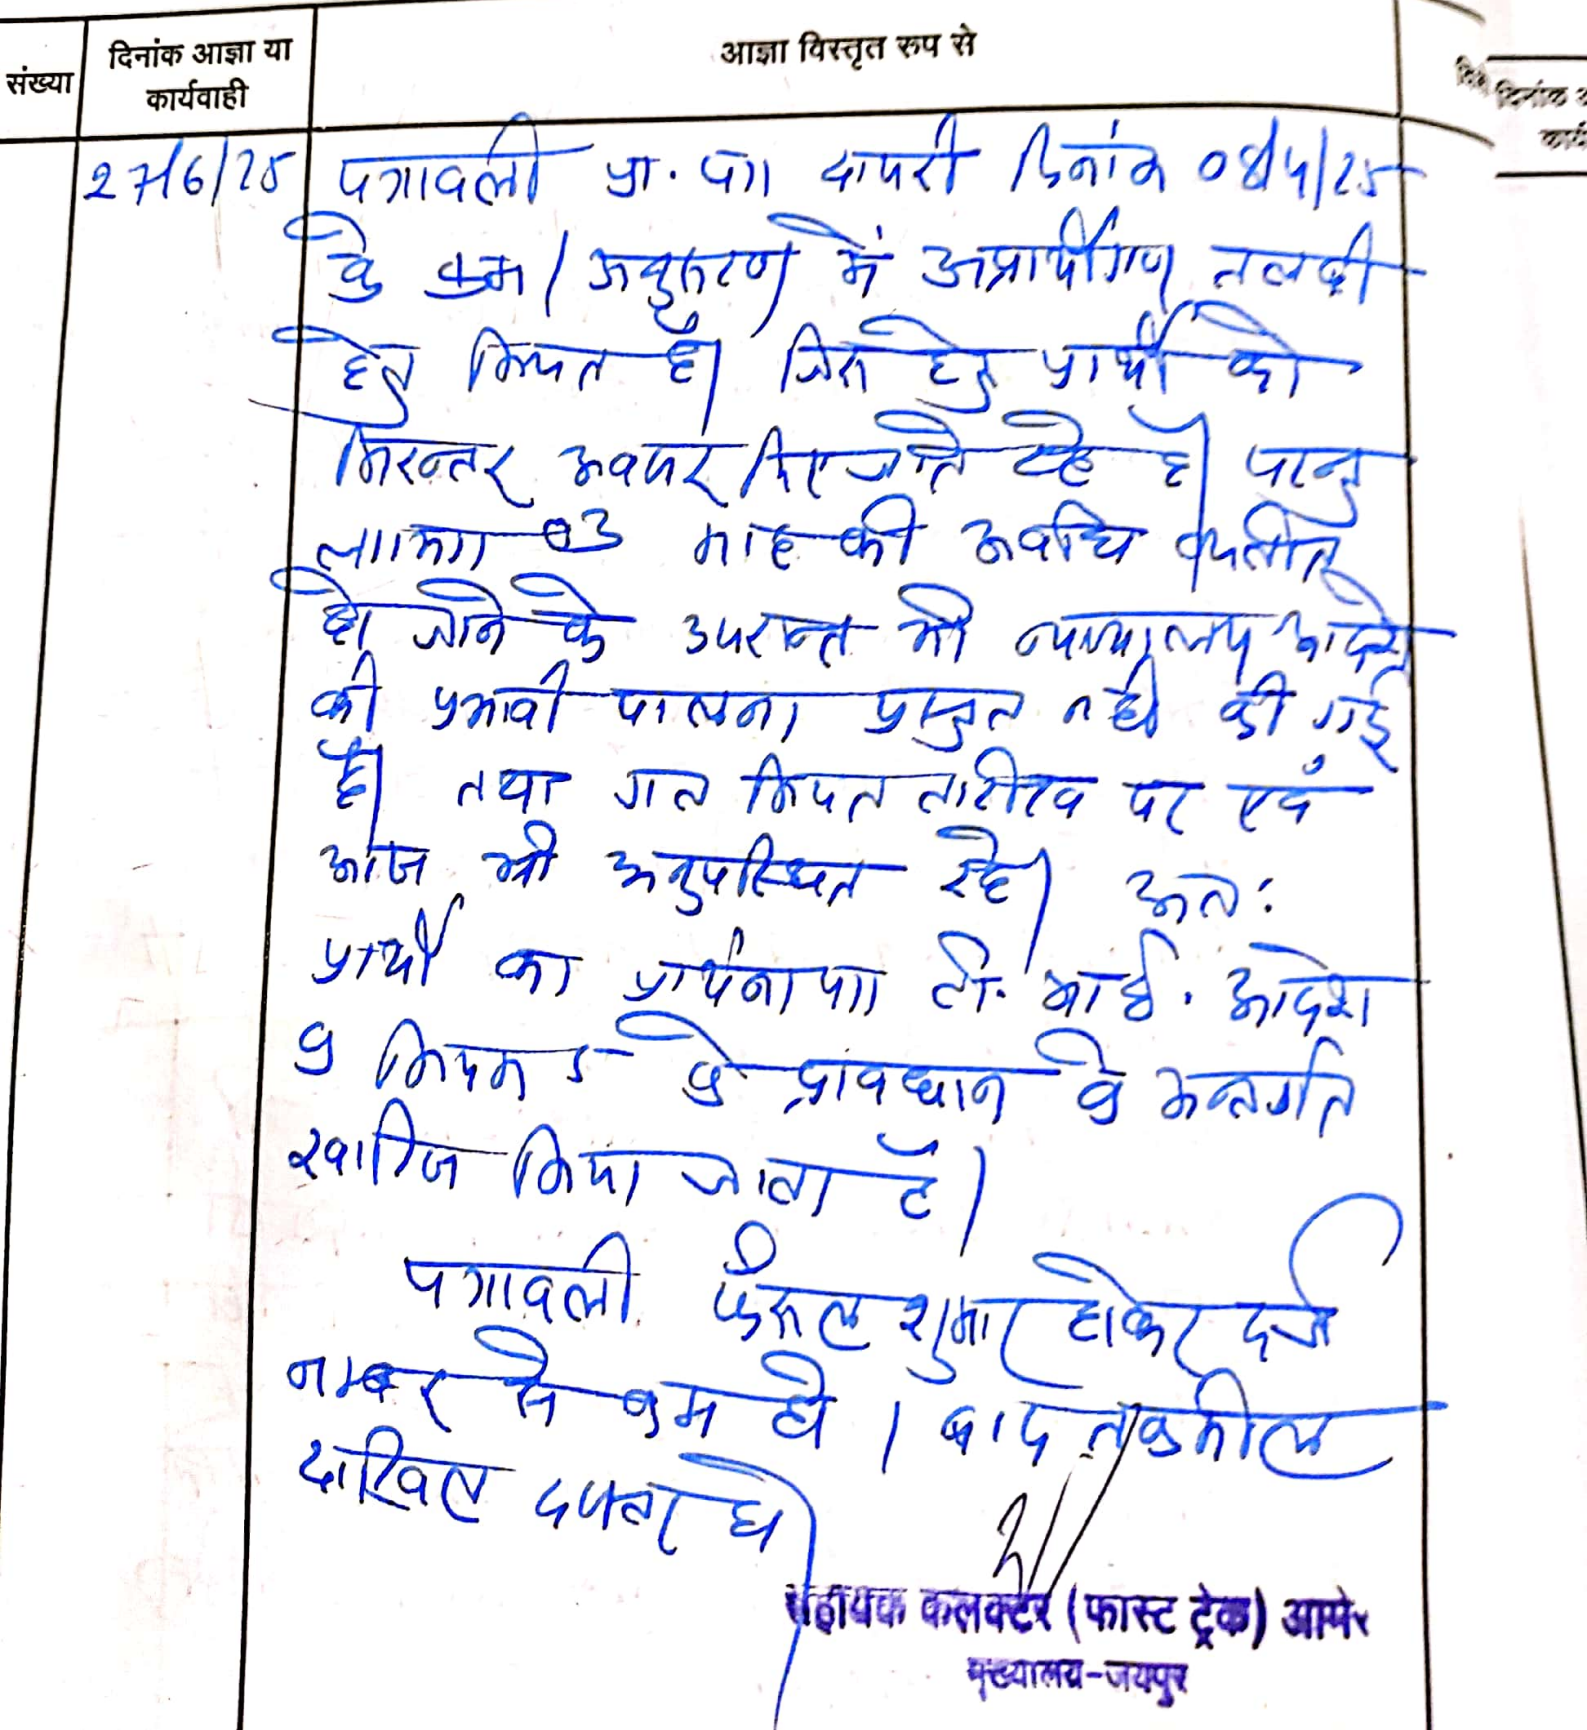 संख्या
दिनांक आज्ञा या
कार्यवाही
आज्ञा विस्तृत रूप से
दिनांक
27/6/25
पत्रावली प्रा. पत्र दायरी दिनांक 08/4/25
के क्रम / अनुसरण में अप्रार्थीगण तलबी
हेतु नियत है। जिस हेतु प्रार्थी को
निरन्तर अवसर दिए जाते रहे है। परन्तु
लगभग 03 माह की अवधि व्यतीत
हो जाने के उपरान्त भी न्यायालय आदेश
की प्रभावी पालना प्रस्तुत नही की गई
है। तथा गत नियत तारीख पर एवं
आज भी अनुपस्थित रहे। अतः
प्रार्थी का प्रार्थना पत्र टी. आई. आदेश
9 नियम 5 के प्रावधान के अन्तर्गत
खारिज किया जाता है।
पत्रावली फैसल शुमार होकर दर्ज
नम्बर से कम हो। बाद तकमील
दाखिल दफ्तर हो।
सहायक कलक्टर (फास्ट ट्रेक) आमेर
मुख्यालय-जयपुर